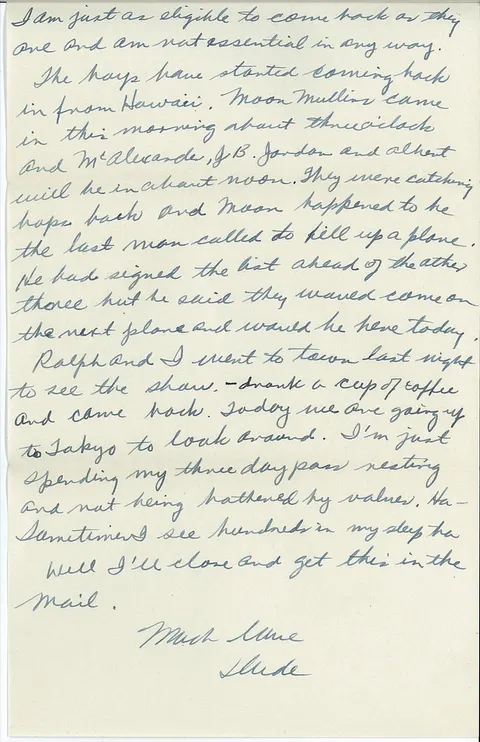 I am just as eligible to come back as they
are and am not essential in any way.
The boys have started coming back
in from Hawaii. Moon Mullins came
in this morning about three o'clock
and McAlexander, J.B. Jordan and Albert
will be in about noon. They were catching
hops back and Moon happened to be
the last man called to fill up a plane.
He had signed the list ahead of the other
three but he said they would come on
the next plane and would be here today.
Ralph and I went to town last night
to see the show. - drank a cup of coffee
and came back. Today we are going up
to Tokyo to look around. I'm just
spending my three day pass resting
and not being bothered by valves. Ha -
Sometimes I see hundreds in my sleep ha
Well I'll close and get this in the
mail.
Much Love
Dude